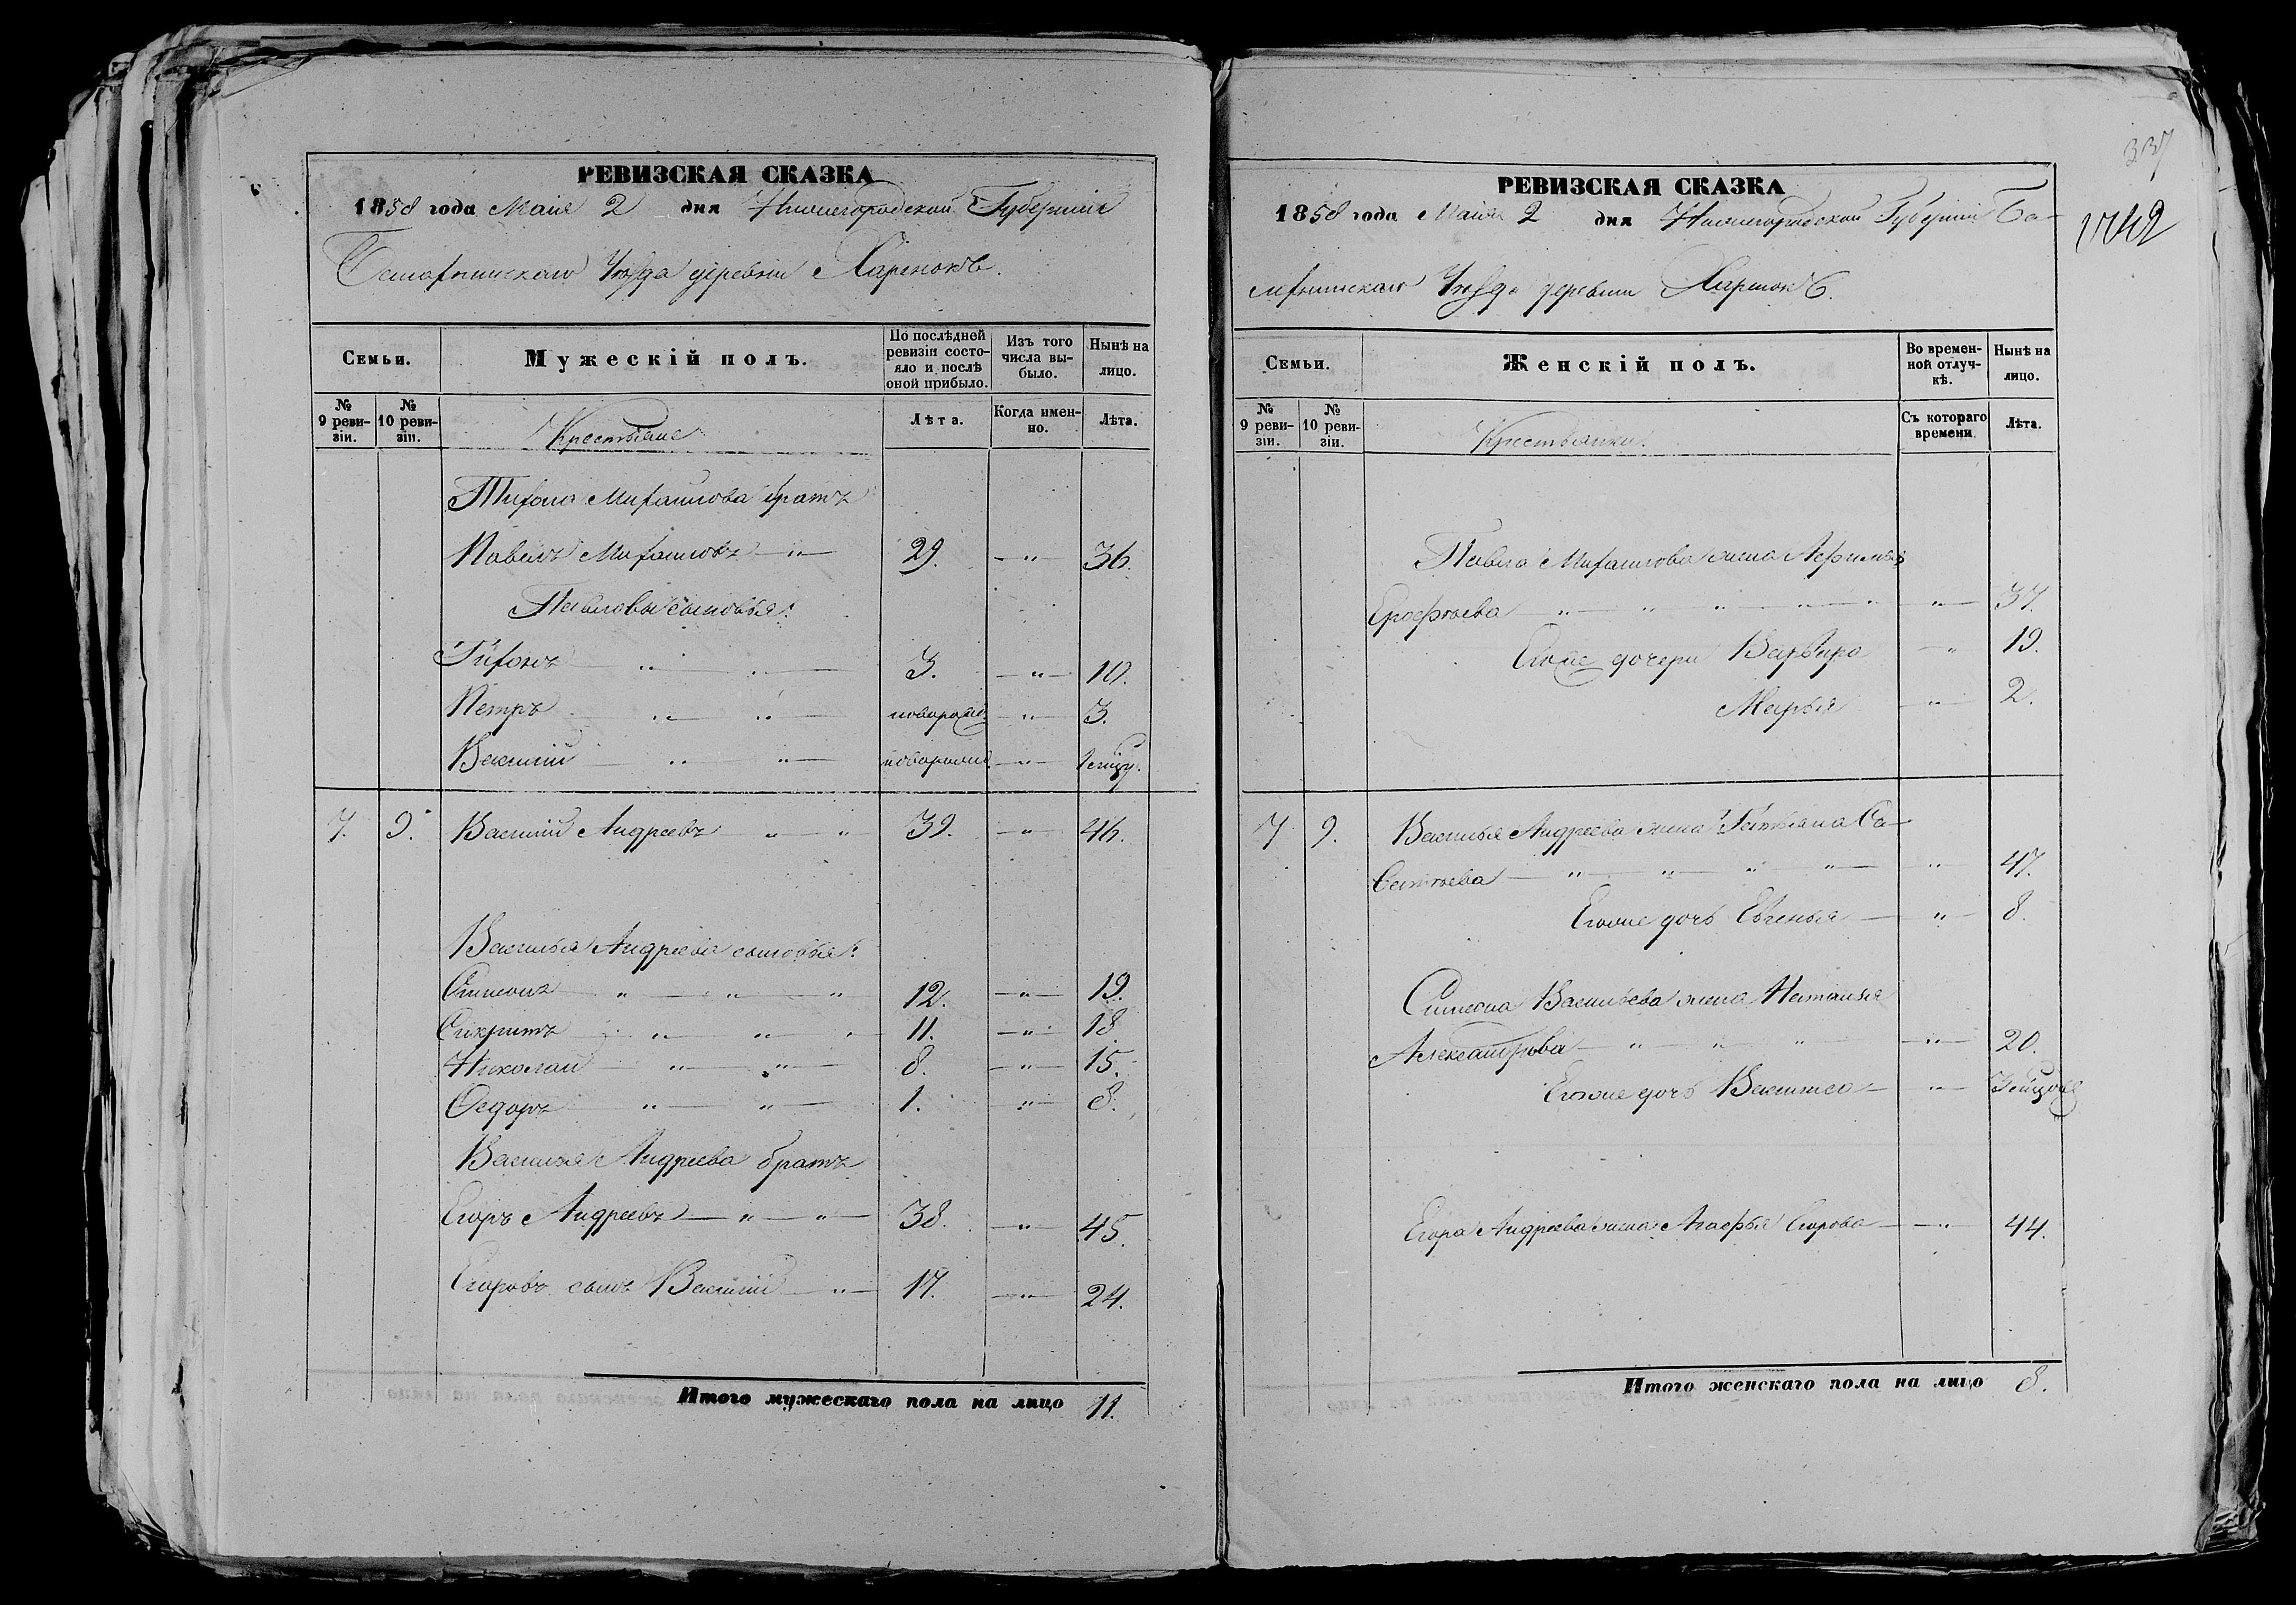 РЕВИЗСКАЯ СКАЗКА
1858 года Маія 2 дня Нижегородской Губерніи
Балахнинскаго Уѣзда деревни
Семьи.
Мужескій полъ.
По послѣдней ревизіи состо-
яло и послѣ
оной прибыло.
Изъ того
числа вы-
было.
Нынѣ на
лицо.
№
9 реви-
зіи.
№
10 реви-
зіи.
Крестьяне
Лѣта.
Когда имен-
но.
Лѣта.
Тихона Михайлова братъ
Павелъ Михайловъ — " — 29. — " — 36.
Павловы сыновья:
Тихонъ — " — " — 3. — " — 10.
Петръ " — " — поворожд. — " — 3.
Василий — " — " — поворожд. — " —
7. 9. Василий Андреевъ " — " 39. — " — 46.
Василья Андреева сыновья:
Симеонъ — " — " — " 12. — " — 19.
" — " — " 11. — " — 18
Николай — " — " — 8. — " — 15.
Федоръ — " — " — 1. — " — 8.
Василья Андреева братъ
Егоръ Андреевъ — " — " — 38. — " — 45.
Егоровъ сынъ Василий — " — 17. — " — 24.
Итого мужескаго пола на лицо 11.
337
РЕВИЗСКАЯ СКАЗКА
1858 года Маія 2 дня Нижегородской Губерніи Ба-
лахнинскаго Уѣзда деревни
Семьи.
Женскій полъ.
Во времен-
ной отлуч-
кѣ.
Нынѣ на
лицо.
№
9 реви-
зіи.
№
10 реви-
зіи.
Крестьянки.
Съ котораго
времени.
Лѣта.
Павла Михайлова жена Афимья
Ерофѣева — " — " — " — " — " — " — 37.
Егоже дочери Варвара — " 19.
Марья — " — 2.
7 9. Василья Андреева жена Татьяна Са-
— " — " — " — " — " — 47.
Егоже дочь Евгенья — " — 8.
Симеона Васильева жена Наталья
Александрова — " — " — " — " — 20.
Егоже дочь Василиса — " —
Егора Андреева жена Агафья Егорова — " 44.
Итого женскаго пола на лицо 8.